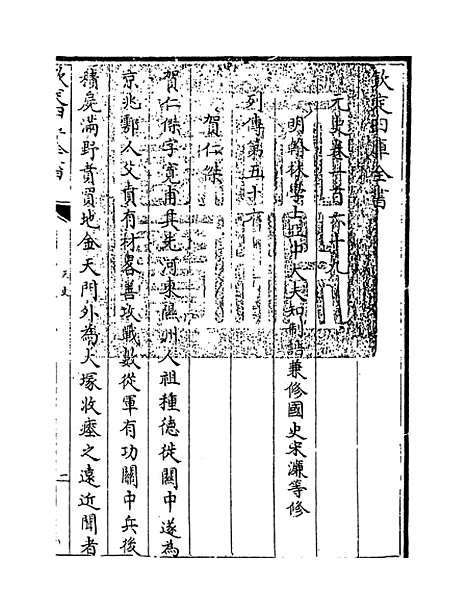 欽定四庫全書
元史卷一百六十九
明翰林學士亞中大夫知制誥兼修國史宋濂等修
列傳第五十六
賀仁傑
賀仁傑字寛甫其先河東隰州人祖種德徙關中遂為
京兆鄠人父賁有材畧善攻戰數從軍有功關中兵後
積屍滿野賁買地金天門外為大塚收瘞之遠近聞者
欽定四庫全書
元史